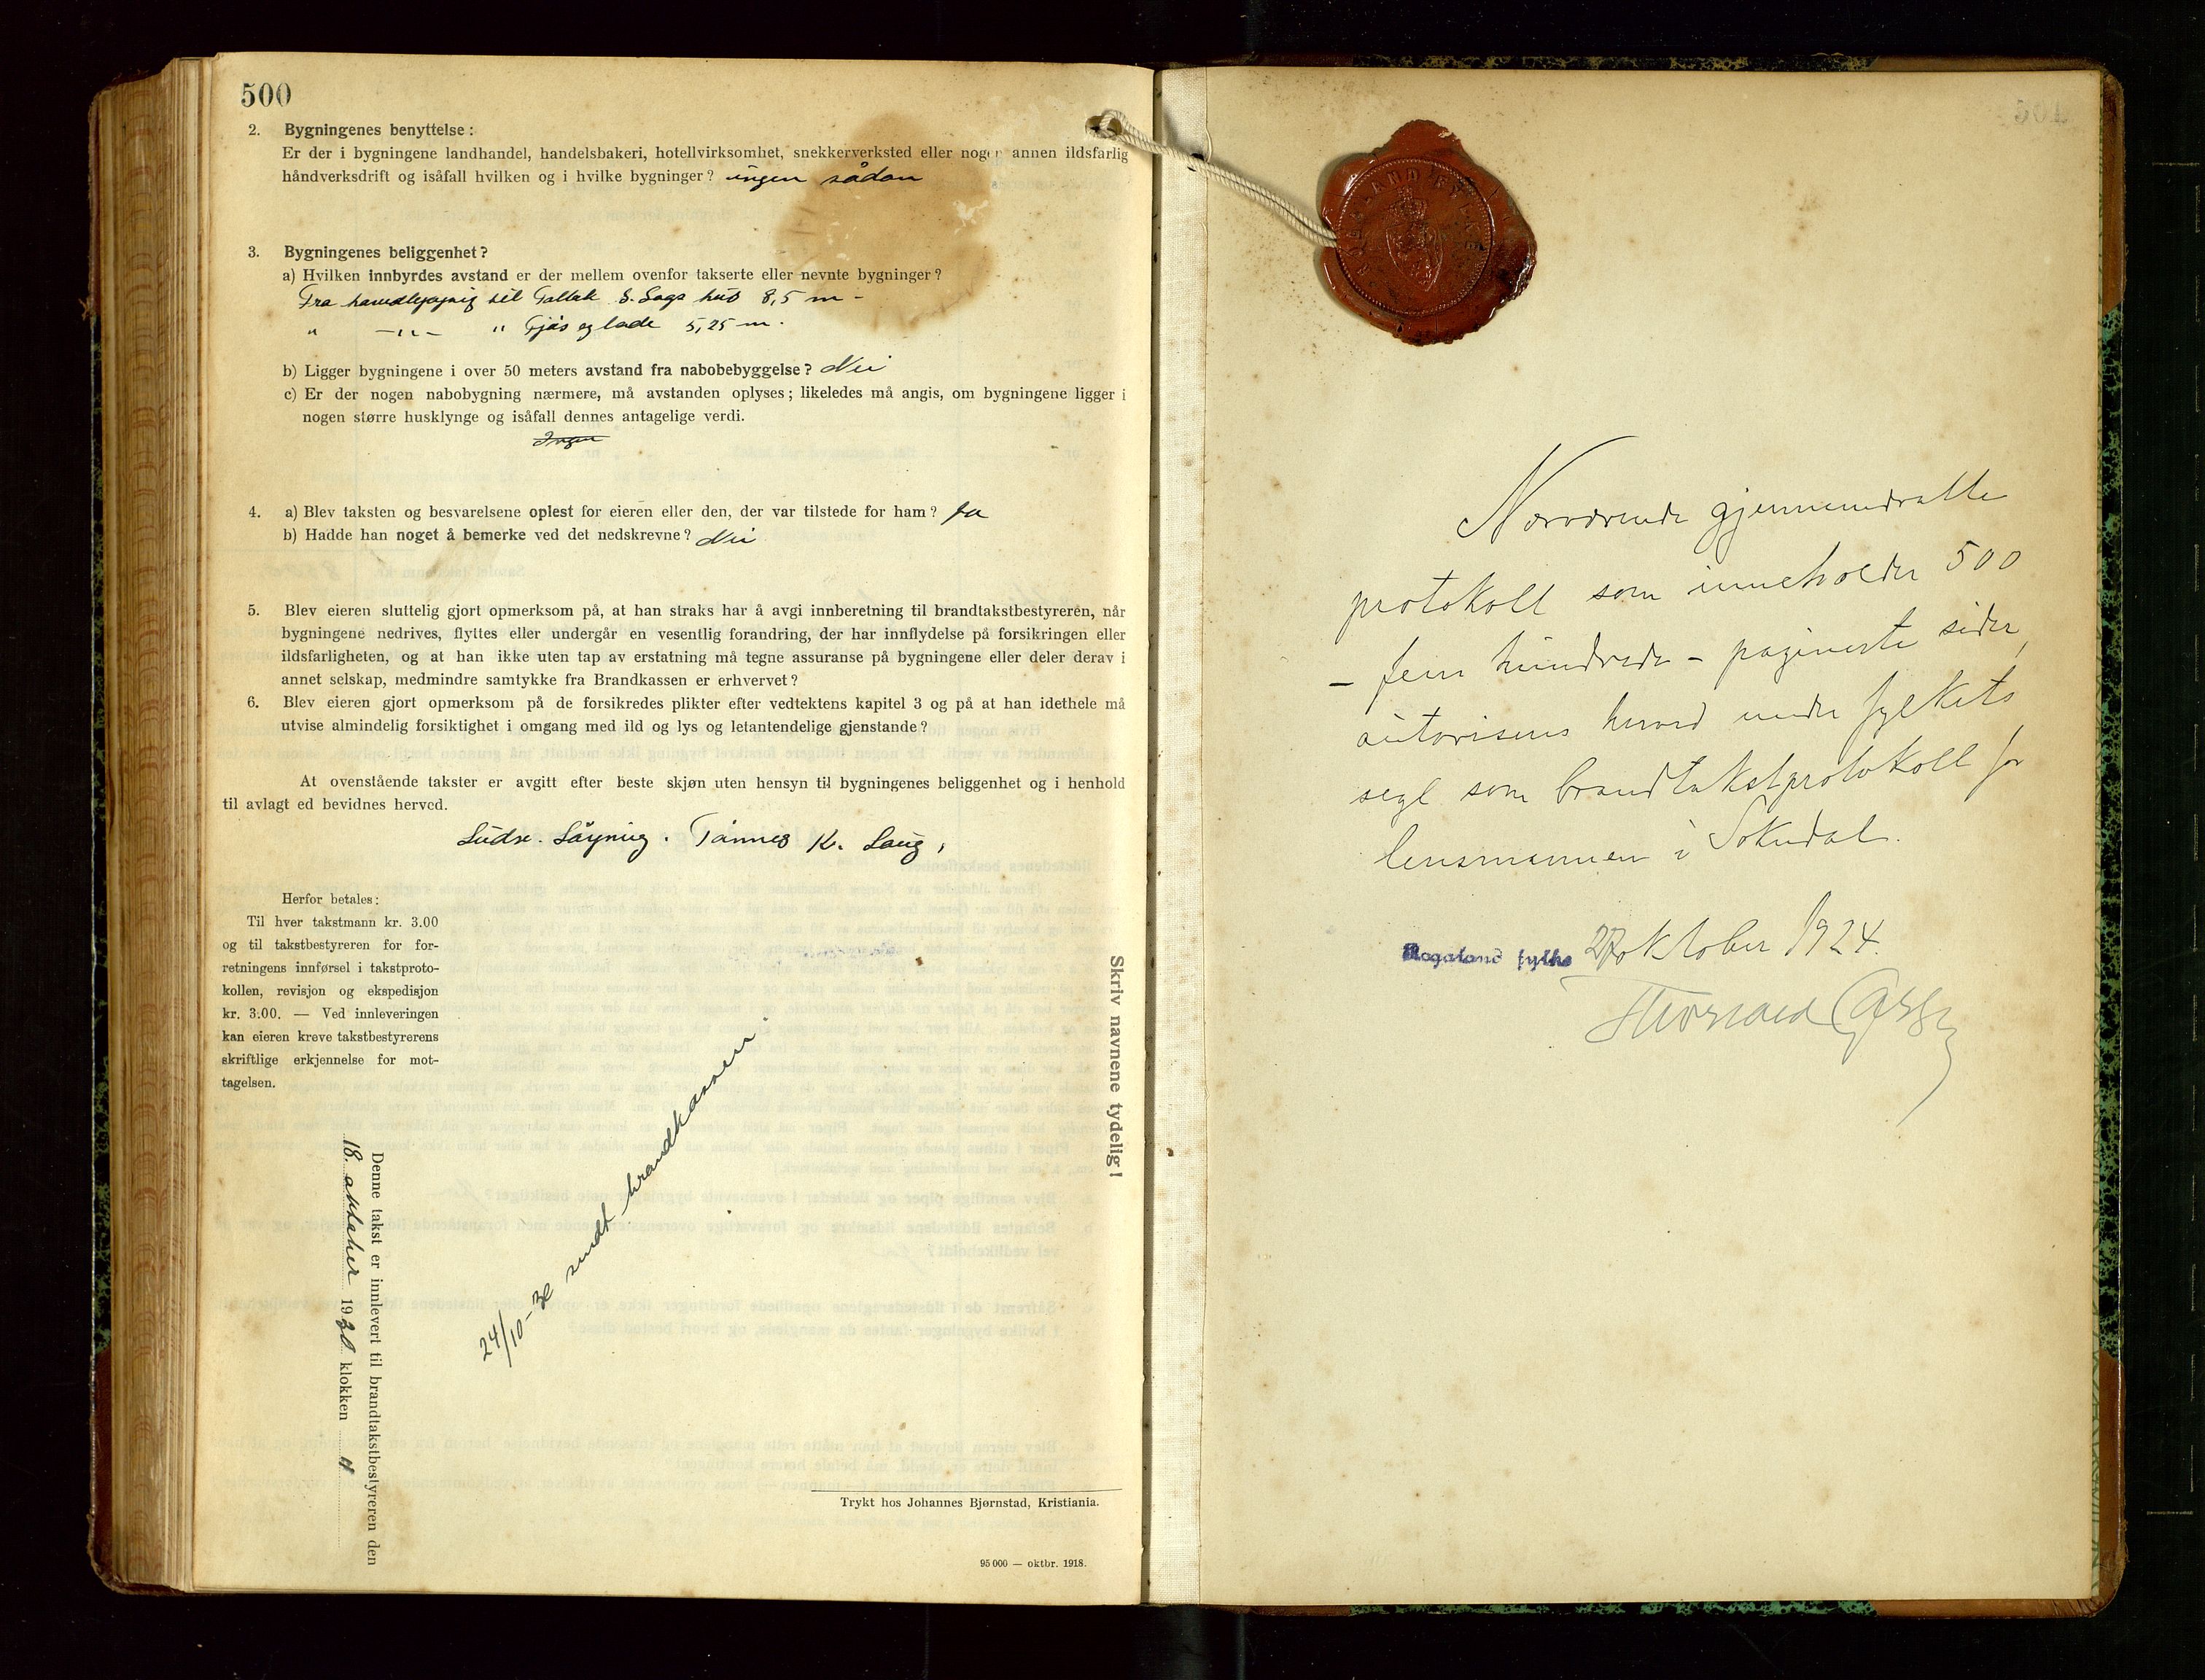 500
2. Bygningenes benyttelse:
Er der i bygningene landhandel, handelsbakeri, hotellvirksomhet, snekkerverksted eller nogen annen ildsfarlig
håndverksdrift og isåfall hvilken og i hvilke bygninger? ingen sådan
3. Bygningenes beliggenhet?
a) Hvilken innbyrdes avstand er der mellem ovenfor takserte eller nevnte bygninger?
Fra til S. hus 8,5 m -
" -"- " Fjøs og lade 5,25 m.
b) Ligger bygningene i over 50 meters avstand fra nabobebyggelse? Nei
c) Er der nogen nabobygning nærmere, må avstanden oplyses; likeledes må angis, om bygningene ligger i
nogen større husklynge og isåfall dennes antagelige verdi.
Ingen
4. a) Blev taksten og besvarelsene oplest for eieren eller den, der var tilstede for ham? Ja
b) Hadde han noget å bemerke ved det nedskrevne? Nei
5. Blev eieren sluttelig gjort opmerksom på, at han straks har å avgi innberetning til brandtakstbestyreren, når
bygningene nedrives, flyttes eller undergår en vesentlig forandring, der har innflydelse på forsikringen eller
ildsfarligheten, og at han ikke uten tap av erstatning må tegne assuranse på bygningene eller deler derav i
annet selskap, medmindre samtykke fra Brandkassen er erhvervet?
6. Blev eieren gjort opmerksom på de forsikredes plikter efter vedtektens kapitel 3 og på at han idethele må
utvise almindelig forsiktighet i omgang med ild og lys og letantendelige gjenstande?
At ovenstående takster er avgitt efter beste skjøn uten hensyn til bygningenes beliggenhet og i henhold
til avlagt ed bevidnes herved.
Tønnes K.
Herfor betales:
Til hver takstmann kr. 3.00
og til takstbestyreren for for-
retningens innførsel i takstproto-
kollen, revisjon og ekspedisjon
kr. 3.00. — Ved innleveringen
kan eieren kreve takstbestyrerens
skriftlige erkjennelse for mot-
tagelsen.
Skriv navnene tydelig!
Denne takst er innlevert til brandtakstbestyreren den
18. oktober 1930 klokken
24/10-30 sendt brandkassen.
Trykt hos Johannes Bjørnstad, Kristiania.
95 000 — oktbr. 1918.
Nærværende gjennemdratte
protokoll som inneholder 500
- fem hundrede - paginerte sider,
autoriseres herved under fylkets
segl som brandtakstprotokoll for
lensmannen i Sokndal.
Rogaland fylke 27 oktober 1924.
ROGALAND FYLKE